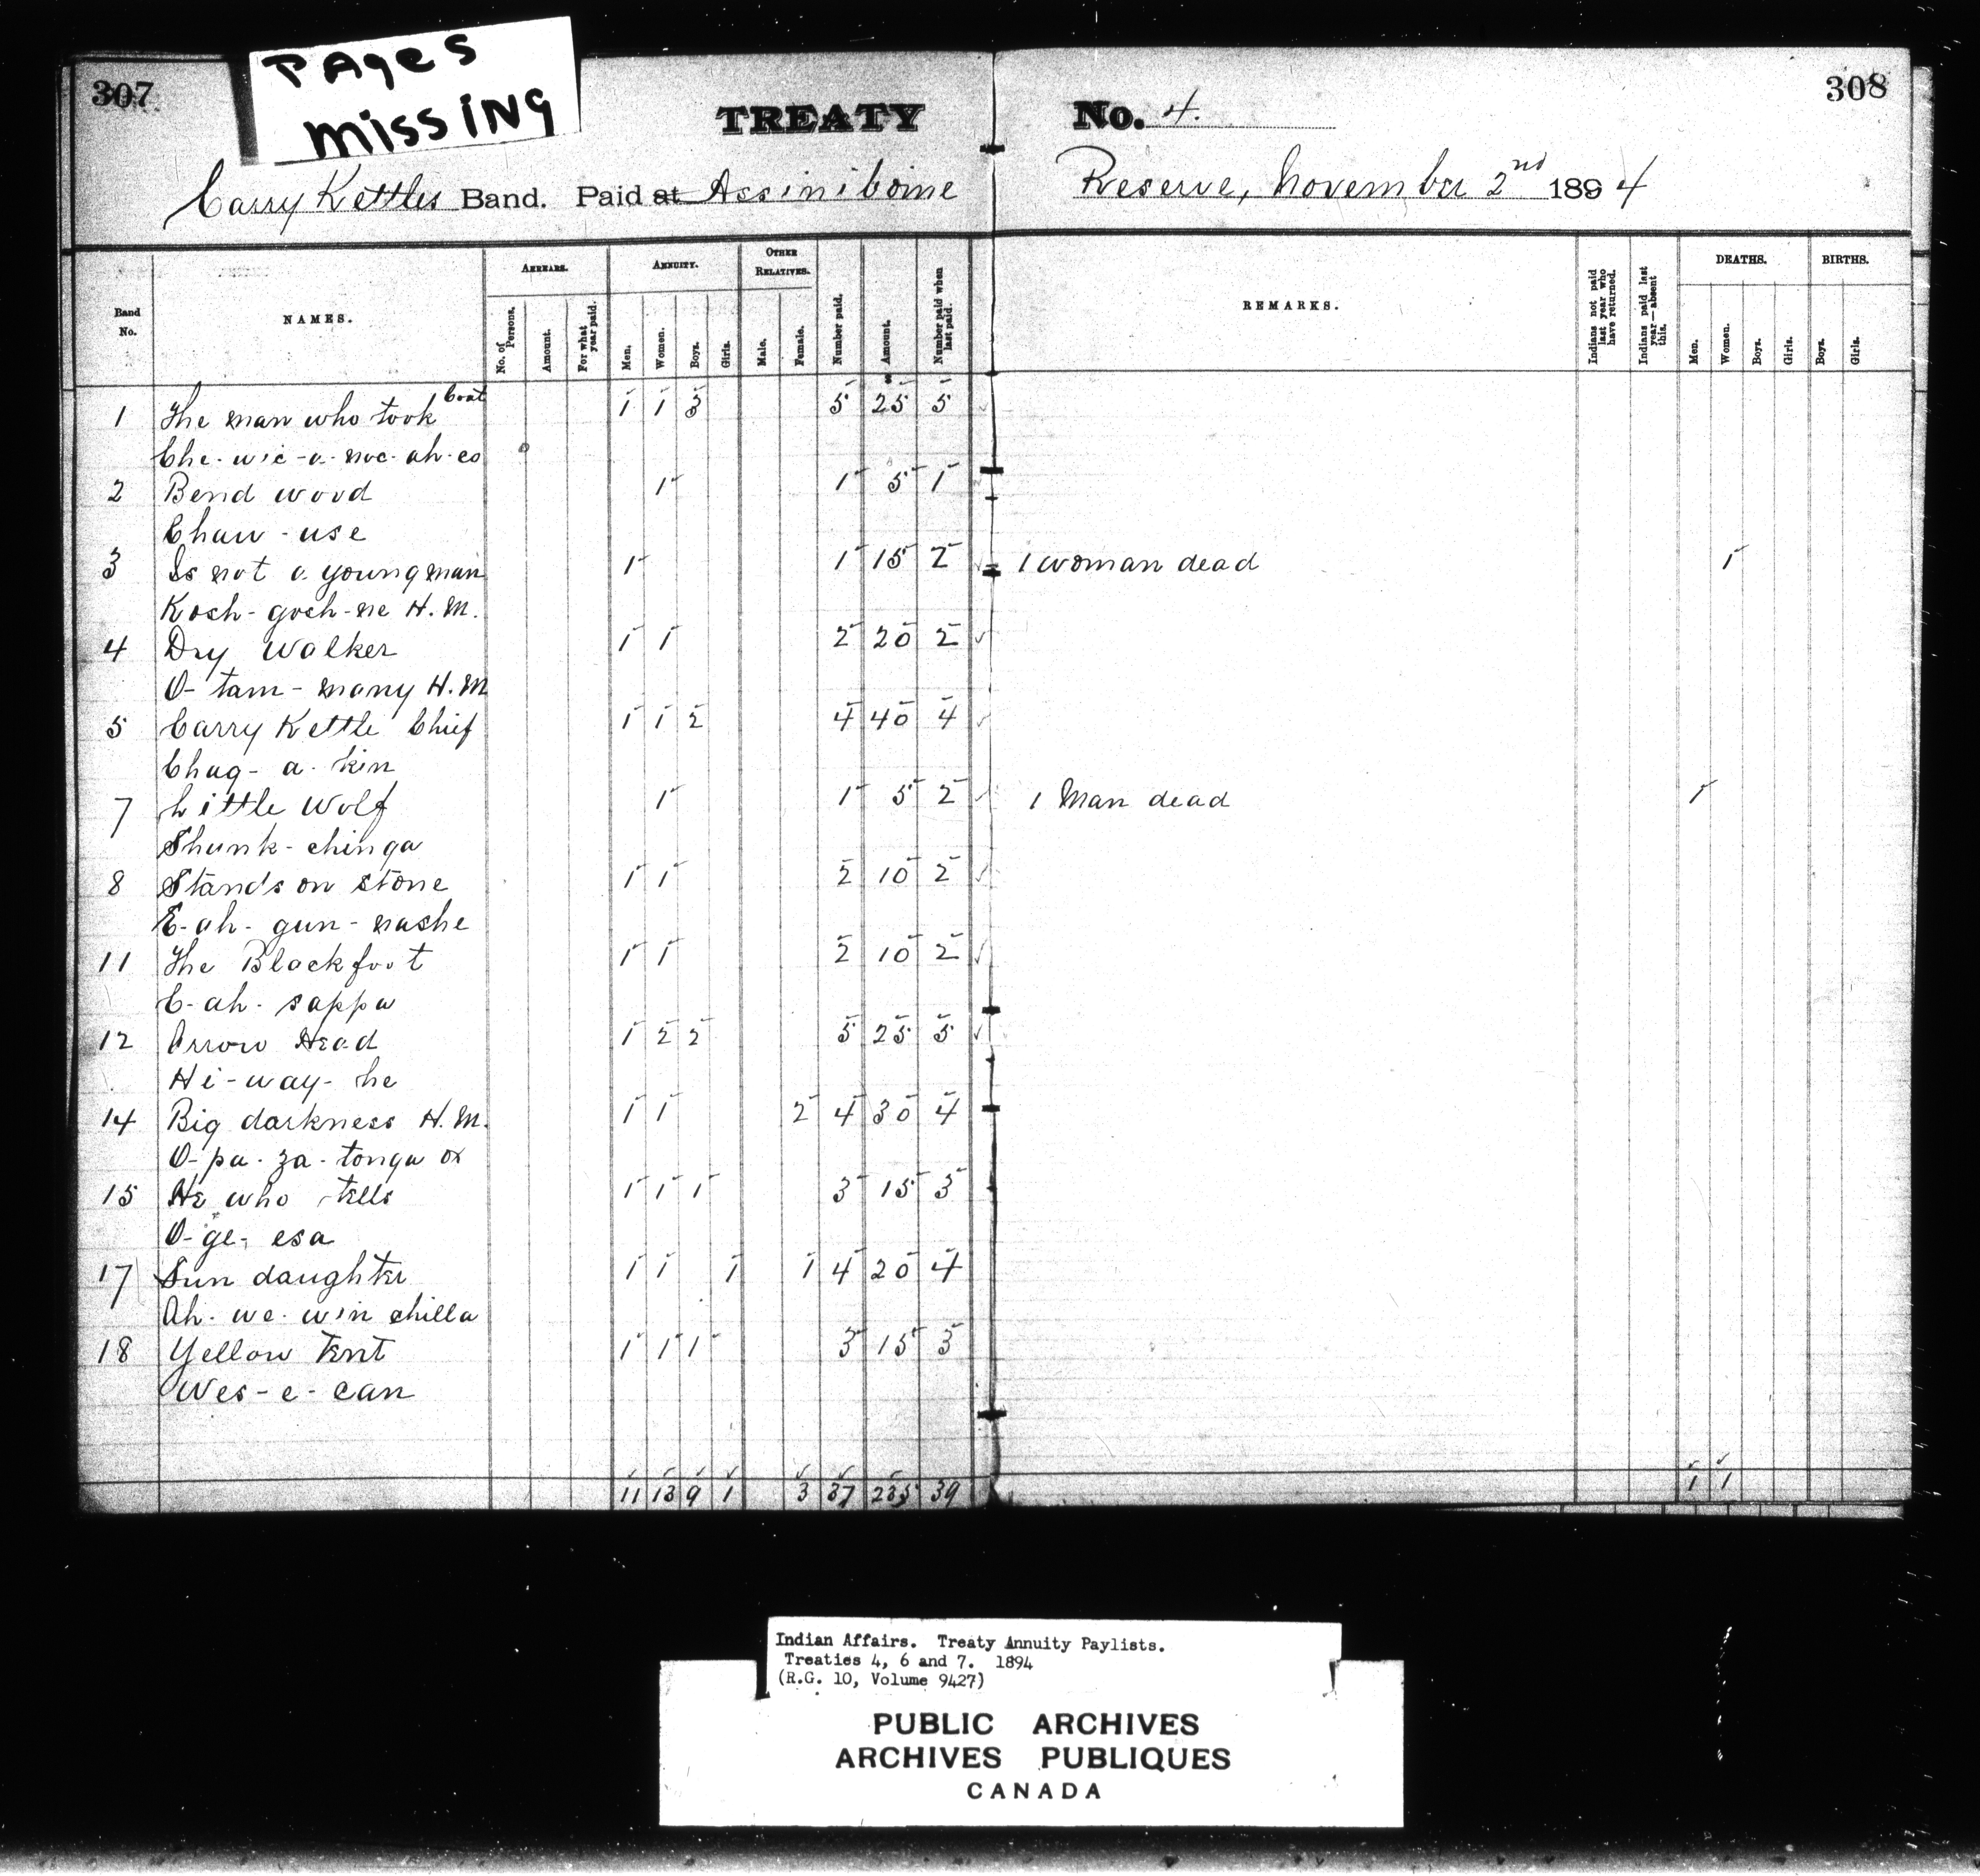 PAges
missiNg
307
308
TREATY No. 4.
Carry Kettles Band. Paid at Assiniboine Reserve, November 2nd 1894
Band No.
NAMES.
ARREARS.
No. of Persons.
Amount.
For what year paid.
ANNUITY.
Men.
Women.
Boys.
Girls.
OTHER RELATIVES.
Male.
Female.
Number paid.
Amount.
Number paid when last paid.
REMARKS.
Indians not paid last year who have returned.
Indians paid last year—absent this.
DEATHS.
Men.
Women.
Boys.
Girls.
BIRTHS.
Boys.
Girls.
1 The man who took Coat 1 1 3 5 25 5
Che-wic-a-noc-ah-co
2 Bend wood 1 1 5 1
Chaw-use
3 Is not a young man 1 1 15 2 1 woman dead 1
Kosh-goch-ne H.M.
4 Dry Walker 1 1 2 20 2
O-tam-many H.M
5 Carry Kettle Chief 1 1 2 4 40 4
Chag-a-kin
7 Little Wolf 1 1 5 2 1 Man dead 1
Shunk-chinga
8 Stands on stone 1 1 2 10 2
E-ah-gun-nashe
11 The Blackfoot 1 1 2 10 2
C-ah-sappa
12 Arrow Head 1 2 2 5 25 5
Hi-way-he
14 Big darkness H.M. 1 1 2 4 30 4
O-pa-za-tonga ox
15 He who tells 1 1 1 3 15 3
O-ge-esa
17 Sun daughter 1 1 1 1 4 20 4
Ah-we-win chilla
18 Yellow Tent 1 1 1 3 15 3
Wes-e-can
11 13 9 1 3 37 235 39 1 1
Indian Affairs. Treaty Annuity Paylists.
Treaties 4, 6 and 7. 1894
(R.G. 10, Volume 9427)
PUBLIC ARCHIVES
ARCHIVES PUBLIQUES
CANADA